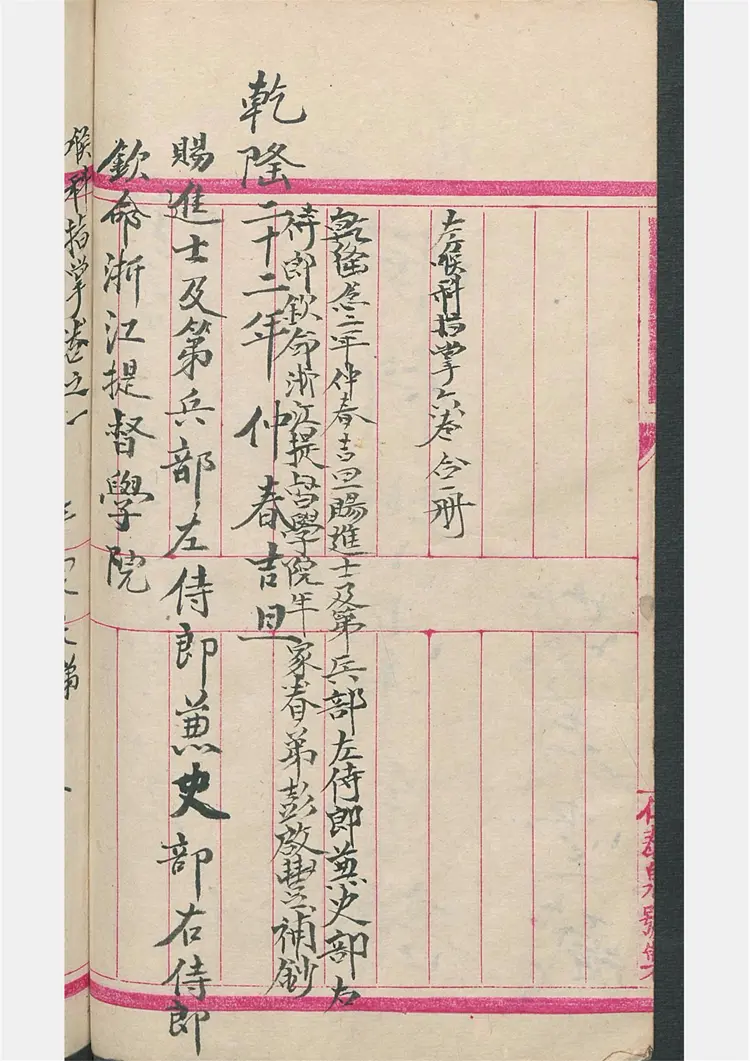 右喉科指掌六卷合一册
乾隆念二年仲春吉旦賜進士及第兵部左侍郎兼史部右
侍郎欽命浙江提督學院年家眷弟彭啟豐補鈔
乾隆二十二年仲春吉旦
賜進士及第兵部左侍郎兼史部右侍郎
欽命浙江提督學院
喉科指掌卷之一